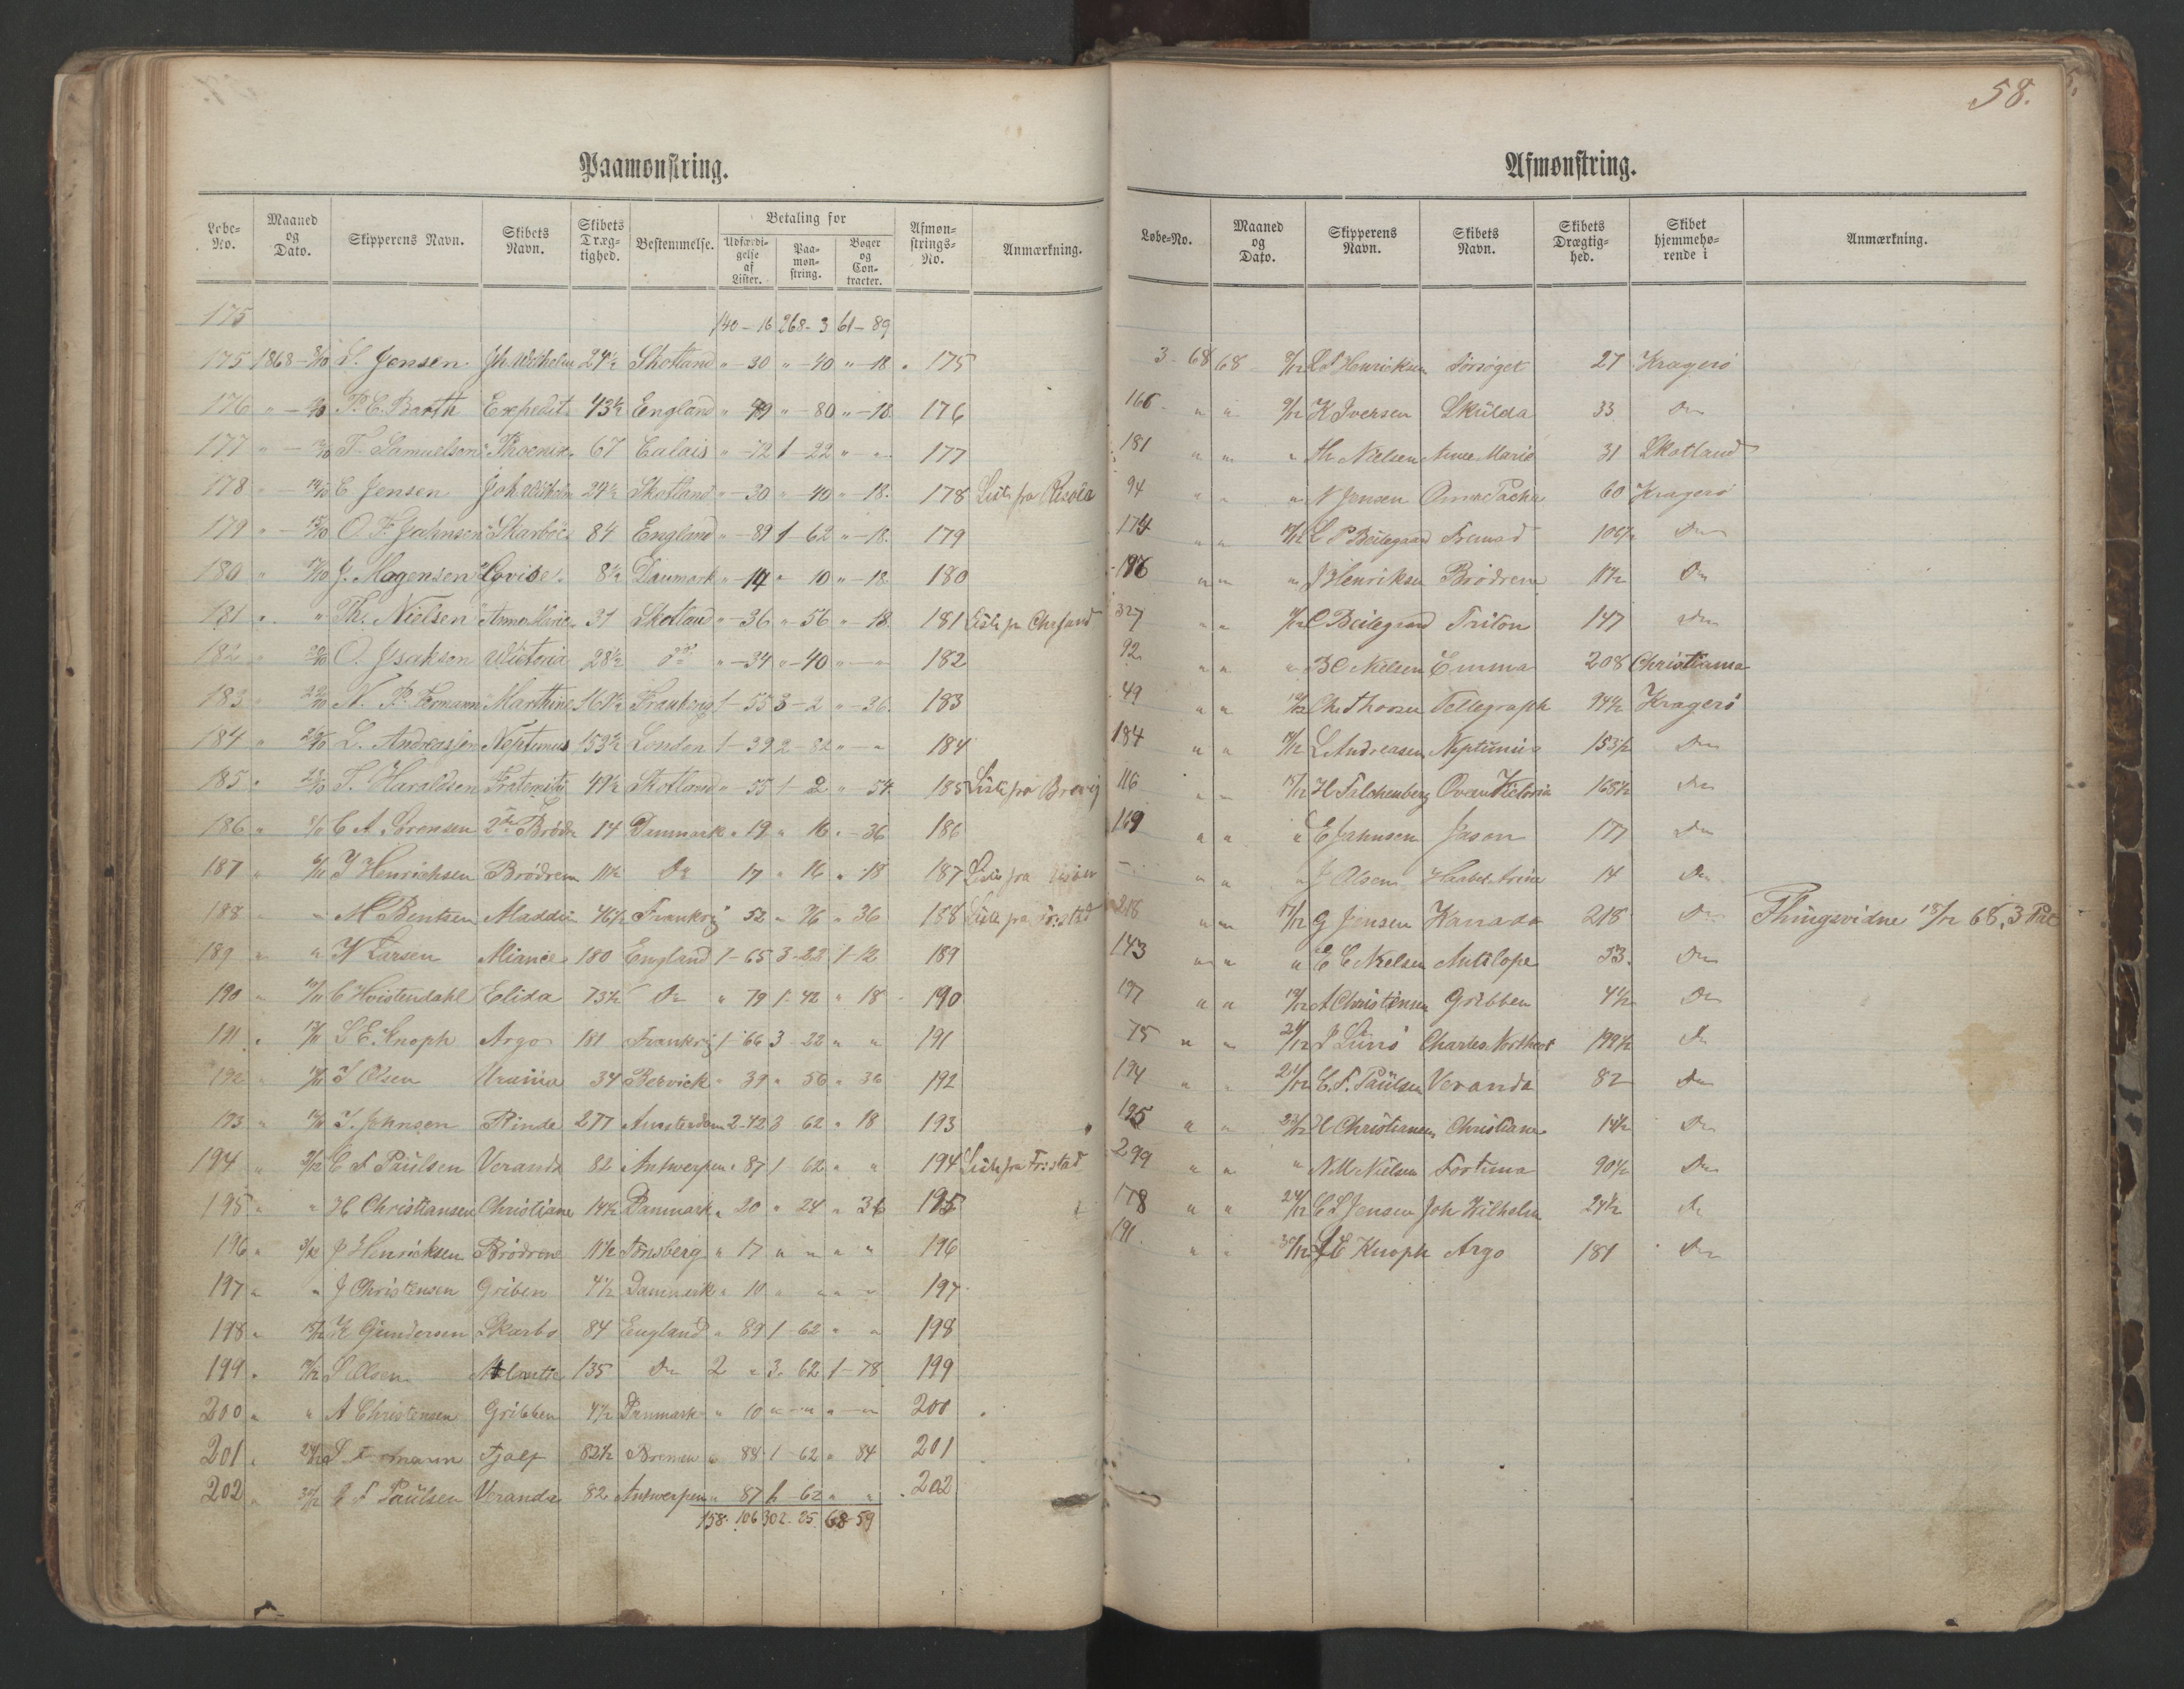 58.
Paamønstring.
Løbe-No. Maaned og Dato. Skipperens Navn. Skibets Navn. Skibets Dræg-tighed. Bestemmelse. Betaling for Udfærdi-gelse af Lister. Paa-møn-string. Bøger og Con-tracter. Afmøn-strings-No. Anmærkning.
175 140-16 268-3 61-89
175 1868 Jensen 24½ Skotland " -30 " -40 " -18 175
176 " P. C. Barth Expedit 43½ England " -80 " -18 176
177 " T. Samuelson Phoenix 67 Calais " -72 1-22 " " 177
178 " C Jensen Joh Wilhelm 24½ Skotland " -30 " -40 " -18. 178 Liste fra
179 " O. F. Jahnsen Skarbo 84 England " -89 1-62 " -18. 179
180 " J. Mogensen 8½ Danmark " -14 " 10 " -18 180
181 " " Th. Nielsen Anna Marie 31 Skotland " -36 " -56 " -18. 181 Liste fra Chrsand
182 " O. Isakson Wictoria 28½ do " -34 " -40 " " 182
183 " N. P. Marthine 1-55 3-2 " -36. 183
184 " L. Andreassen Neptunus 153½ London 1-39 2-82 " " 184
185 " T. Haraldsen Fraternité 49½ Skotland " -55 1-2 " 54 185 Liste fra Brevig
186 " C A Sørensen 2de Brødre 14 Danmark " 19 " 16 " -36 186
187 " Henrichsen Brødrene 11½ Do 17 " 16 " -18 187 Liste fra
188 " " M Bentsen Aladdin 46½ Frankrig 52 " 76 " 36 188 Liste fra Fr:stad
189 " " Larsen 180 England 1-65 3-22 1-12 189
190 " C Hoistendahl Elida 73½ Do " 79 1-42 " 18 190
191 " L E. Knoph Argo 181 Frankrig 1-66 3-22 " " 191
192 " Olsen Urania 34 Bervick " 39 " 56 " 36 192
193 " Johnsen Rinde 277 Amsterdam 2-42 3 62 " 18 193
194 " C F Paülsen Veranda 82 Antwerpen " 87 1 62 " " 194 Liste fra Fr:stad
195 " " H Christiansen Christiane 14½ Danmark " 20 " 24 " 36 195
196 " J Henricksen Brødrene 11½ Tønsberg " 17 " " " " 196
197 " " Christensen Griben 4½ Danmark " 10 " " " 197
198 " K Gundersen Skarbo 84 England " 89 1-62 " " 198
199 " Olsen 135 Do 2 " 3. 62 1-78 199
200 " " A Christensen Gribben 4½ Danmark " 10 " " " " 200
201 " Fjalf 82½ Bremen " 88 1-62 " 84 201
202 " C F Paülsen Veranda 82 Antwerpen " 87 1-62 " " 202
158. 106 302. 25 68 59
Afmønstring.
Løbe-No. Maaned og Dato. Skipperens Navn. Skibets Navn. Skibets Drægtig-hed. Skibet hjemmehø-rende i Anmærkning.
3 68 68 Henriksen Forsøget 27 Kragerø
166 " " 9/12 K Iversen Skulda 33 Do
181 " " " Th Nielsen Anne Marie 31 Skotland
94 " " " N Jensen Omar Pacha 60 Kragerø
174 " " L P Beilegaard Fremad 106½ Do
" " " Henriksen Brødrene 11½ Do
327 " " C Beilegaard Triton 147 Do
92 " " " B C Nielsen Emma 208 Christiania
49 " " Chr Thorsen Tellegraph 94½ Kragerø
184 " " L Andreasen Neptunus 153½ Do
116 " " H Falchenberg Victoria 168½ Do
169 " " " E Jahnsen Jason 177 Do
– " " " J Olsen 14 Do
218 " " 17/12 G Jensen Kanada 218 Do Thingsvidne 18/12 68, 3
143 " " " E C Nielsen Antilope 53. Do
197 " " 19/12 A Christensen Gribben 4½ Do
75 " " 21/12 Charles 199½ Do
194 " " 21/12 C. F. Paülsen Veranda 82 Do
195 " " 23/12 H Christiansen Christiane 14½ Do
299 " " " N M Nielsen Fortuna 90½ Do
178 " " 24/12 C L Jensen Joh Wilhelm 24½ Do
191 " " L E Knoph Argo 181 Do